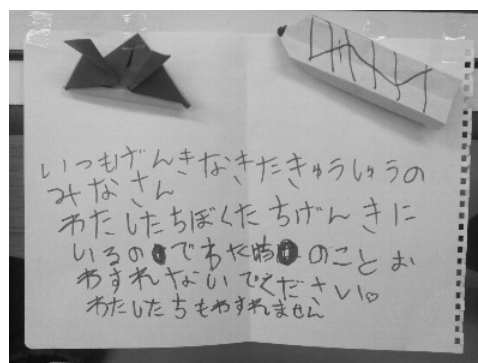 いつもげんきなきたきゅうしゅうの
みなさん
わたしたちぼくたちげんきに
いるので のことお
わすれないでください。
わたしたちもわすれません